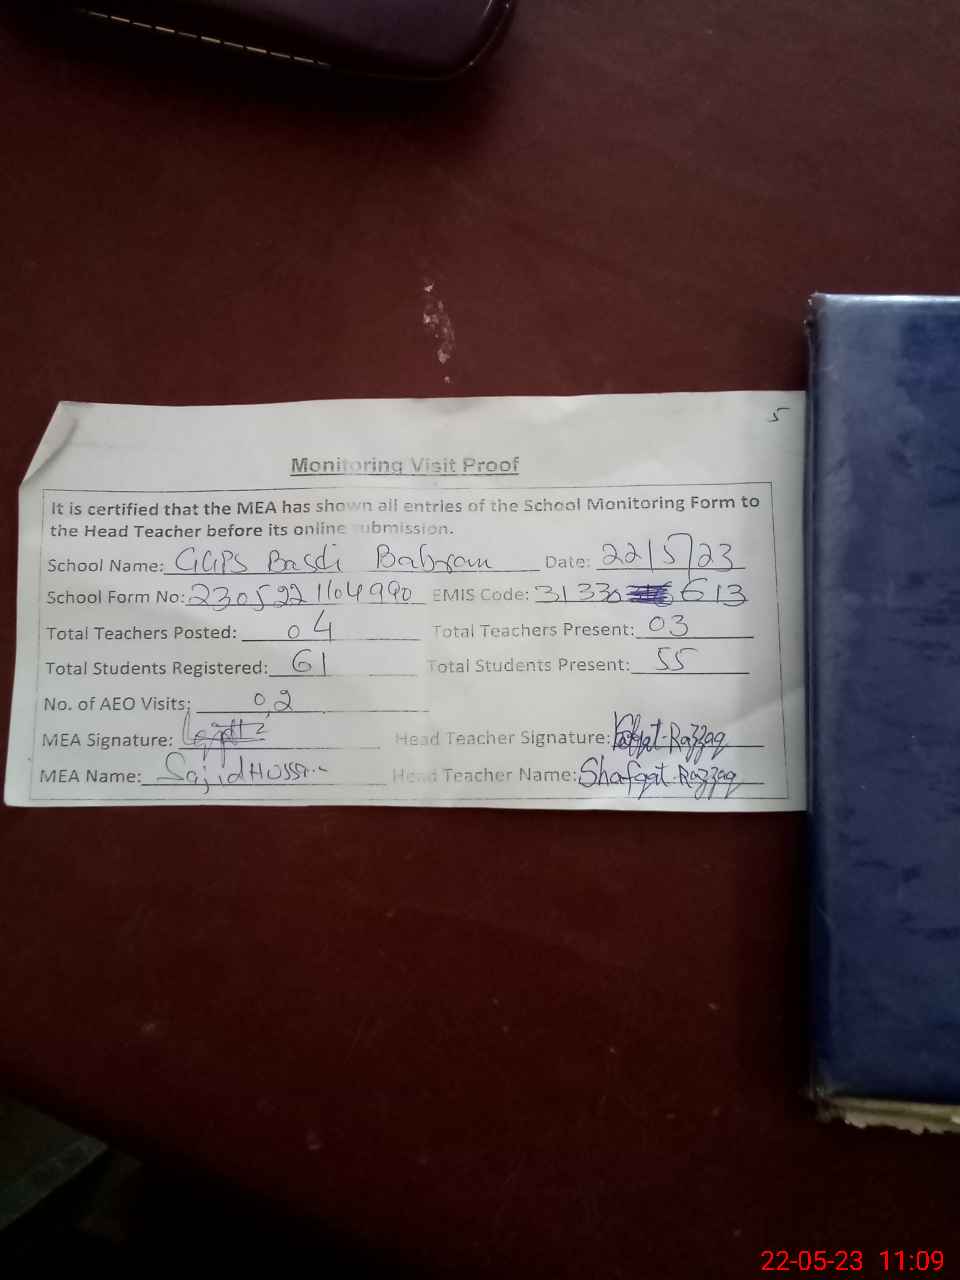 5
Monitoring Visit Proof
It is certified that the MEA has shown all entries of the School Monitoring Form to
the Head Teacher before its online submission.
School Name: GGPS Basti Babram Date: 22/5/23
School Form No: 2305221104990 EMIS Code: 31330 613
Total Teachers Posted: 04 Total Teachers Present: 03
Total Students Registered: 61 Total Students Present: 55
No. of AEO Visits: 02
MEA Signature: Head Teacher Signature: Shafqat Razzaq
MEA Name: Sajid Hussain Head Teacher Name: Shafqat Razzaq
22-05-23 11:09